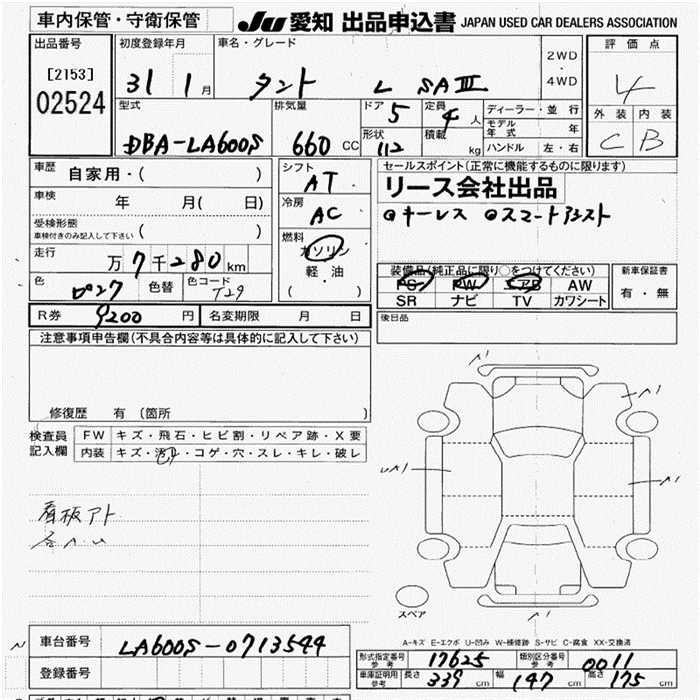 車内保管・守衛保管
JU 愛知 出品申込書 JAPAN USED CAR DEALERS ASSOCIATION
出品番号
[2153]
02524
初度登録年月
31 1月
車名・グレード
タント L SAⅢ
2WD
・
4WD
評価点
4
外装 内装
C B
型式
DBA-LA600S
排気量
660 CC
ドア 5
形状 112
定員 4 人
積載 kg
ディーラー・並行
モデル年式 年
ハンドル 左・右
車歴 自家用・( )
車検 年 月( 日)
受検形態
車検付きのみ記入して下さい ( )
走行 万 7千280 km
色 ピンク 色替 色コード T29
シフト
AT
冷房
AC
燃料
ガソリン
軽・油
( ・ )
セールスポイント(正常に機能するものに限ります)
リース会社出品
◎キーレス ◎スマートアシスト
装備品(純正品に限り○をつけてください)
PS PW エアB AW
SR ナビ TV カワシート
新車保証書
有・無
R券 9200 円 名変期限 月 日
後日品
注意事項申告欄(不具合内容等は具体的に記入して下さい)
修復歴 有(箇所 )
検査員記入欄
FW キズ・飛石・ヒビ割・リペア跡・X要
内装 キズ・汚れ・コゲ・穴・スレ・キレ・破レ
看板アト
各A.U
A1
A1
UA1
A1
A1
スペア
A-キズ E-エクボ U-凹み W-補修跡 S-サビ C-腐食 XX-交換済
車台番号 LA600S-0713544
登録番号
形式指定番号 参考 17625 類別区分番号 参考 0011
車庫証明用 参考 長さ 339 cm 幅 147 cm 高さ 175 cm